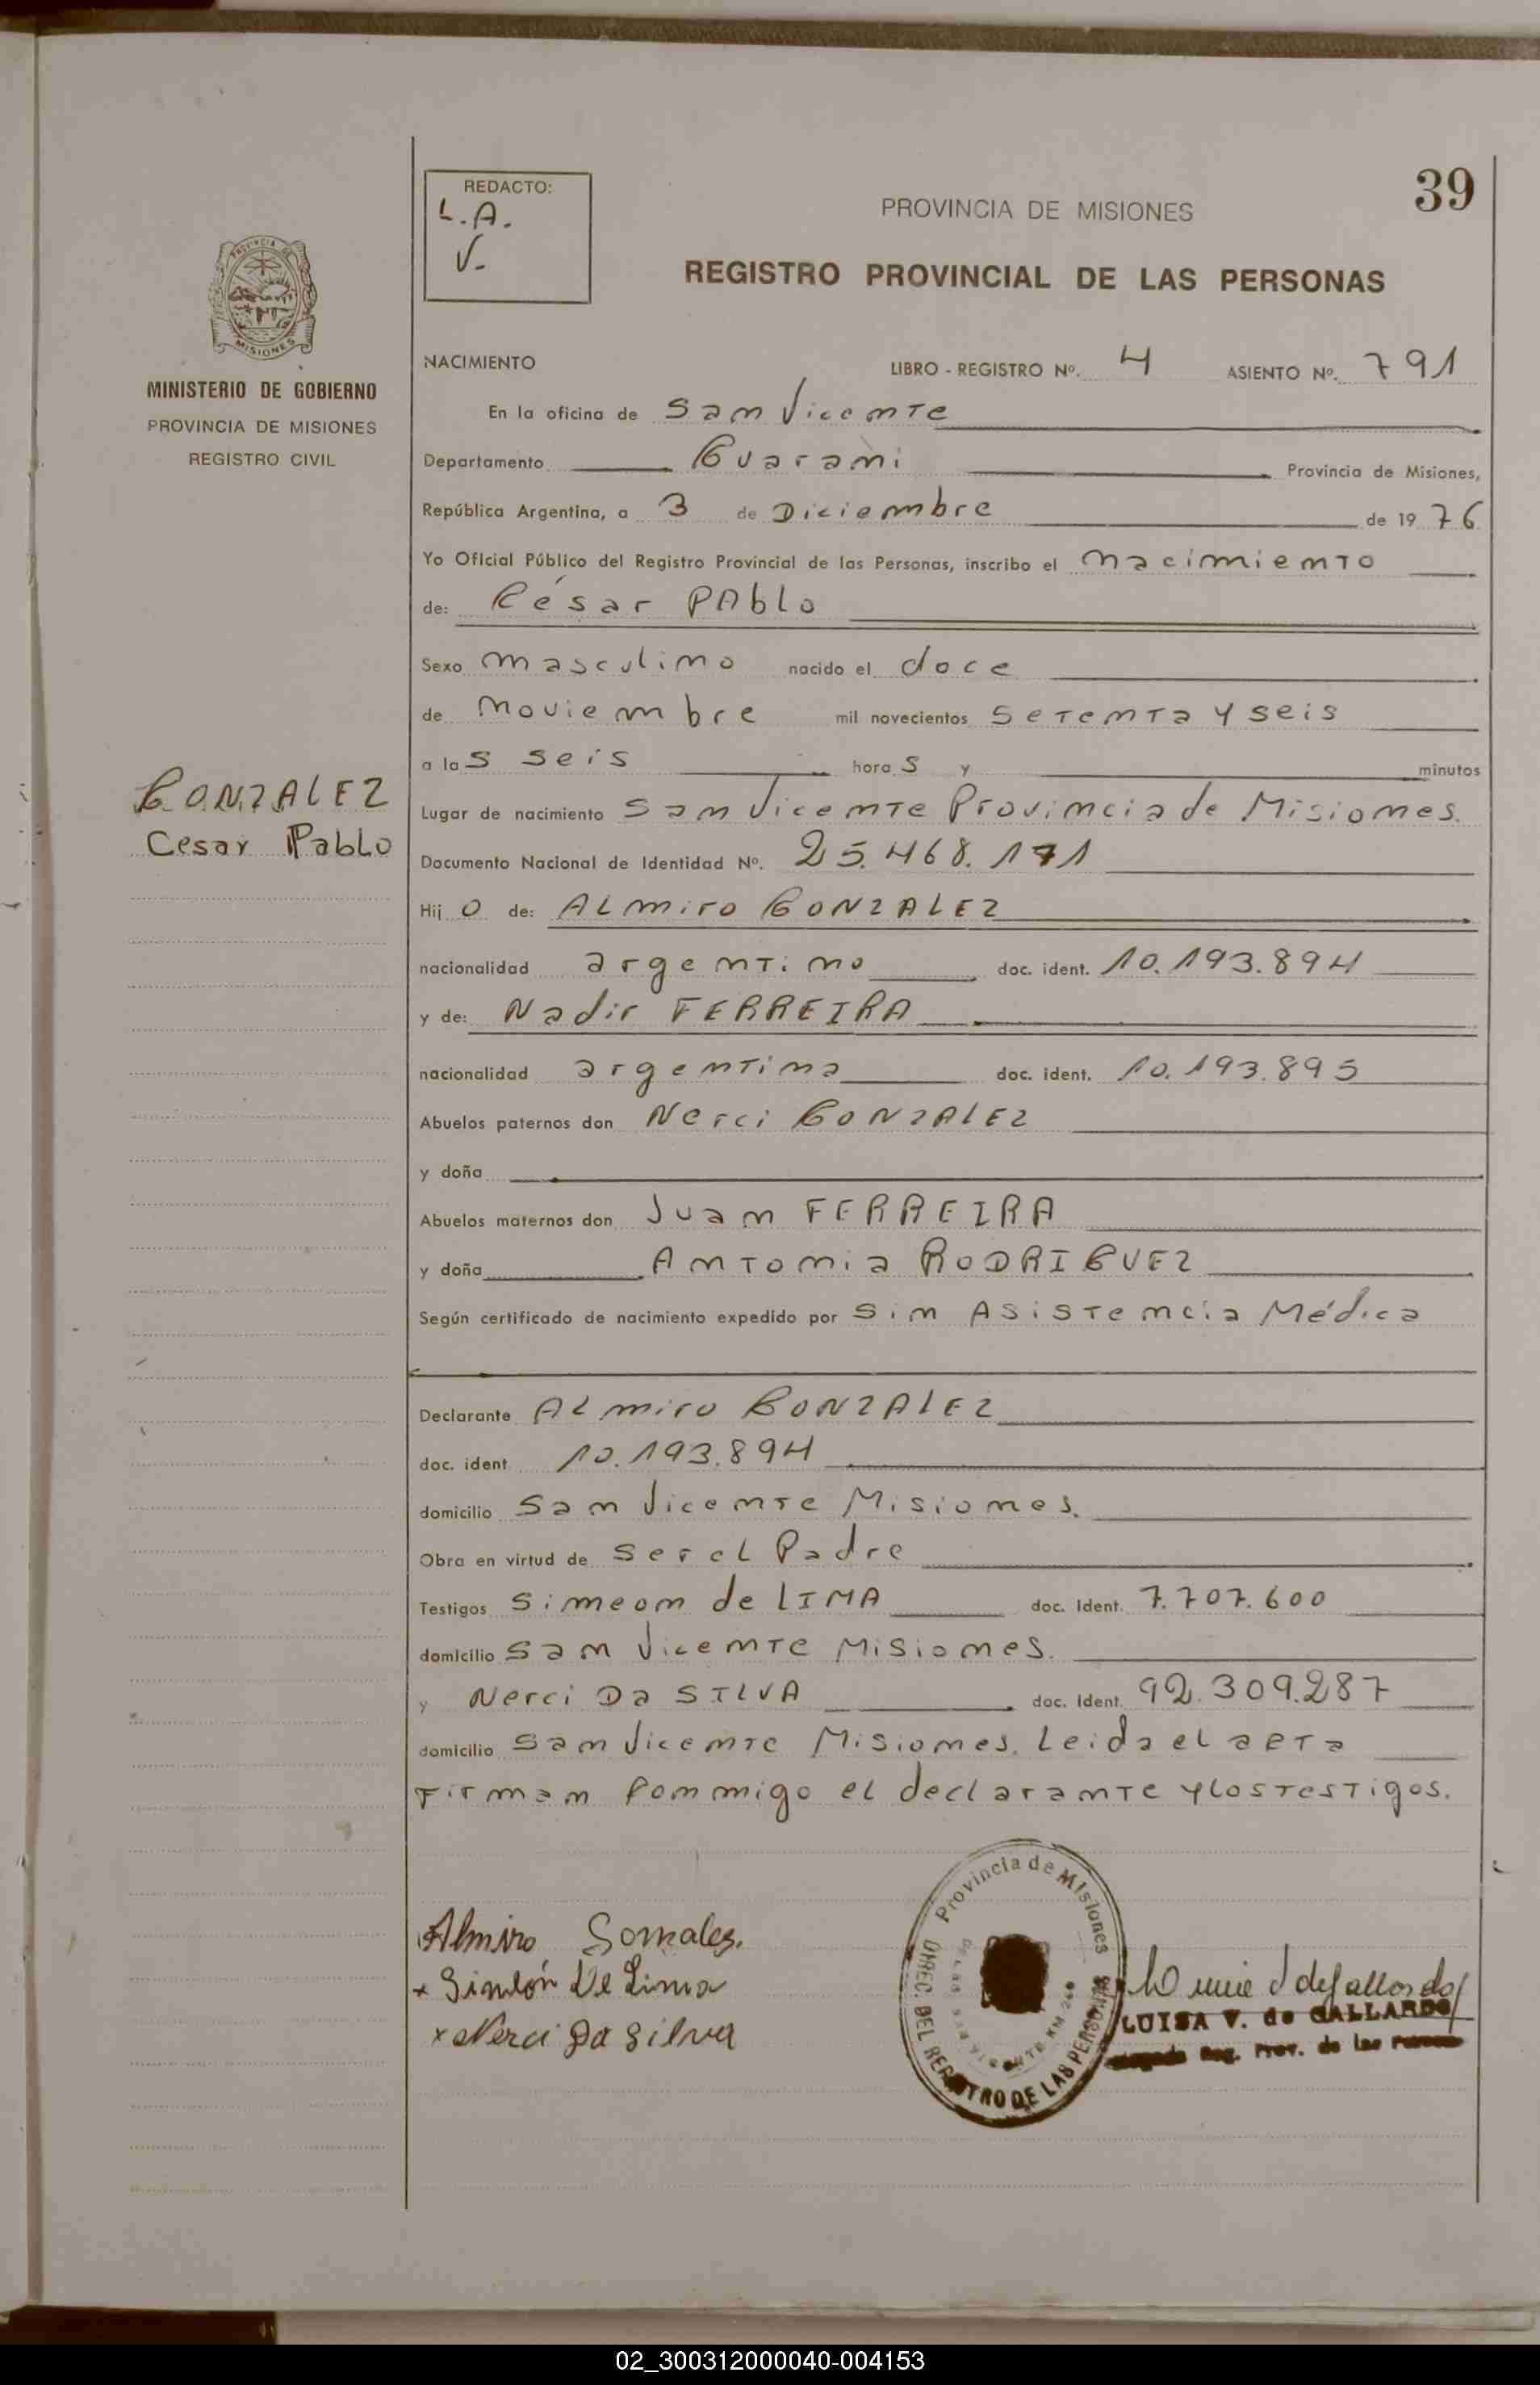 39
REDACTO:
L.A.
V.
PROVINCIA DE MISIONES
REGISTRO PROVINCIAL DE LAS PERSONAS
PROVINCIA DE
MISIONES
MINISTERIO DE GOBIERNO
PROVINCIA DE MISIONES
REGISTRO CIVIL
NACIMIENTO LIBRO - REGISTRO Nº. 4 ASIENTO Nº. 791
En la oficina de San Vicente
Departamento Guaraní Provincia de Misiones,
República Argentina, a 3 de Diciembre de 19 76
Yo Oficial Público del Registro Provincial de las Personas, inscribo el nacimiento
de: César PAblo
Sexo masculino nacido el doce
de Noviembre mil novecientos setenta y seis
a las seis horas y minutos
GONZALEZ
Cesar Pablo
Lugar de nacimiento San Vicente Provincia de Misiones.
Documento Nacional de Identidad Nº. 25.468.171
Hijo de: ALmiro GONZALEZ
nacionalidad argentino doc. ident. 10.193.894
y de: Nadir FERREIRA
nacionalidad argentina doc. ident. 10.193.895
Abuelos paternos don Nerci GONZALEZ
y doña
Abuelos maternos don Juan FERREIRA
y doña Antonia RODRIGUEZ
Según certificado de nacimiento expedido por sin Asistencia Médica
Declarante ALmiro GONZALEZ
doc. ident 10.193.894
domicilio San Vicente Misiones.
Obra en virtud de ser el Padre
Testigos Simeon de LIMA doc. Ident. 7.707.600
domicilio San Vicente Misiones.
y Nerci Da SILVA doc. Ident. 92.309.287
domicilio San Vicente Misiones. Leida el acta
Firman conmigo el declarante y los testigos.
Almiro Gonzalez.
x Simeón De Lima
x Nerci Da Silva
Provincia de Misiones
DIREC. DEL REGISTRO DE LAS PERSONAS
LUISA V. de GALLARDO
Reg. Prov. de las
02_300312000040-004153